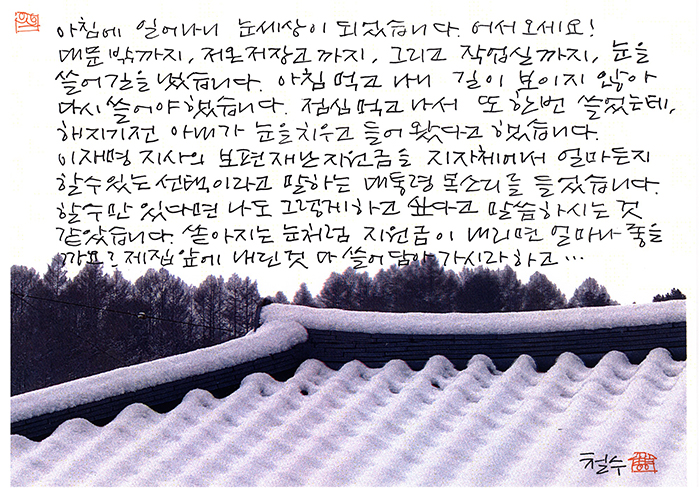 아침에 일어나니 눈세상이 되었습니다. 어서오세요!
대문밖까지, 저온저장고까지, 그리고 작업실까지, 눈을
쓸어길을 냈습니다. 아침먹고 나니 길이 보이지 않아
다시 쓸어야 했습니다. 점심먹고 나서 또 한번 쓸었는데,
해지기전 아내가 눈을 치우고 들어 왔다고 했습니다.
이재명 지사의 보편재난지원금을 지자체에서 얼마든지
할수있는 선택이라고 말하는 대통령 목소리를 들었습니다.
할수만 있다면 나도 그렇게하고 싶다고 말씀하시는 것
같았습니다. 쏟아지는 눈처럼 지원금이 내리면 얼마나 좋을
까요? 제집앞에 내린것 다 쓸어담아 가시라하고...
철수